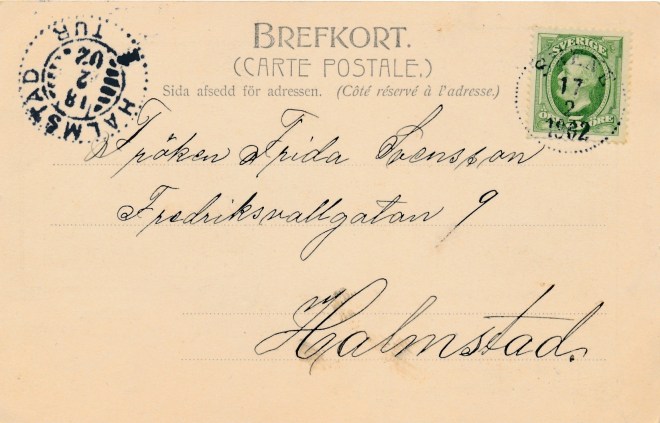 BREFKORT.
(CARTE POSTALE.)
Sida afsedd för adressen. (Côté réservé à l'adresse.)
SVERIGE
ÖRE
17
2
1902
HALMSTAD
TUR
18
2
02
Fröken Frida Svensson
Fredriksvallgatan 9
Halmstad.